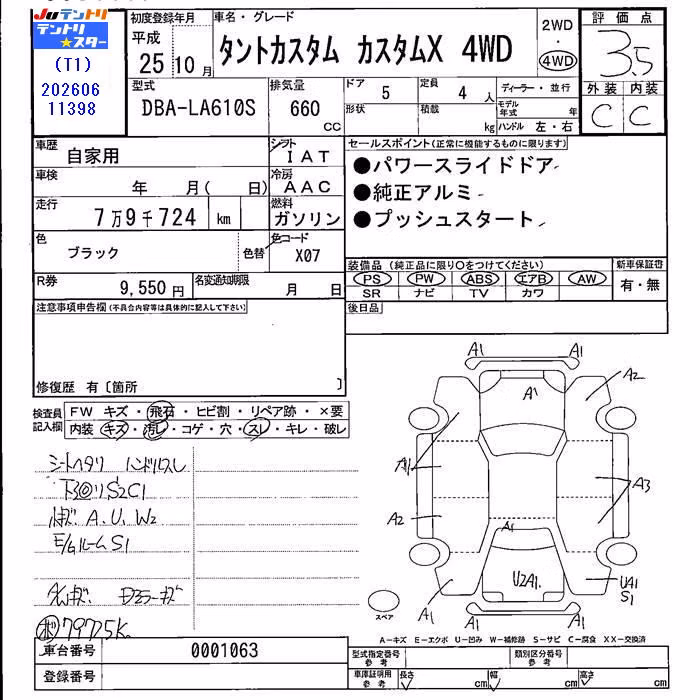 JUテントリ
テントリ★スター
(T1)
202606
11398
初度登録年月
平成
25 10月
車名・グレード
タントカスタム カスタムX 4WD
2WD
・
4WD
評価点
3.5
外装 内装
C C
型式
DBA-LA610S
排気量
660
CC
ドア
5
定員
4 人
形状
積載
kg
ディーラー・並行
モデル年式 年
ハンドル 左・右
車歴
自家用
シフト
IAT
車検
年 月( 日)
冷房
AAC
走行
7万9千724 km
燃料
ガソリン
色
ブラック
色替
色コード
X07
R券
9,550 円
名変通知期限
月 日
セールスポイント(正常に機能するものに限ります)
●パワースライドドア
●純正アルミ
●プッシュスタート
装備品 (純正品に限り○をつけてください)
PS PW ABS エアB AW
SR ナビ TV カワ
新車保証書
有・無
後日品
注意事項申告欄(不具合内容等は具体的に記入して下さい)
修復歴 有〔箇所 〕
検査員記入欄
FW キズ・飛石・ヒビ割・リペア跡・×要
内装 キズ・汚レ・コゲ・穴・スレ・キレ・破レ
シートヘタリ ハンドルスレ
下回りS2C1
A.U.W2
E/GルームS1
79725K
A1 A1
A1
A2
A1
A3
A2
A1
U2A1
UA1
S1
A1
A1 A1
スペア
A-キズ E-エクボ U-凹み W-補修跡 S-サビ C-腐食 XX-交換済
車台番号
0001063
登録番号
型式指定番号
参考
類別区分番号
参考
車庫証明用
参考
長さ cm 幅 cm 高さ cm